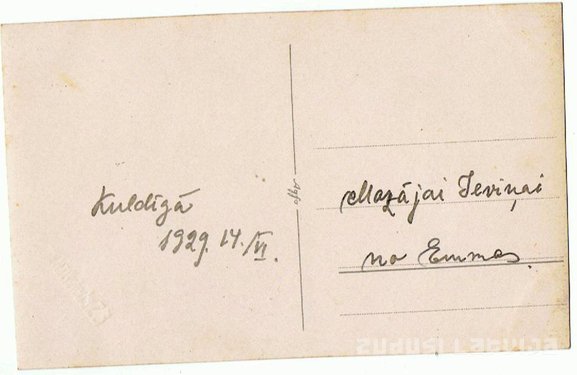 Kuldīgā
1929. 14./VI.
Agfa
Mazājai Ieviņai
no Emmas
zudusi latvija